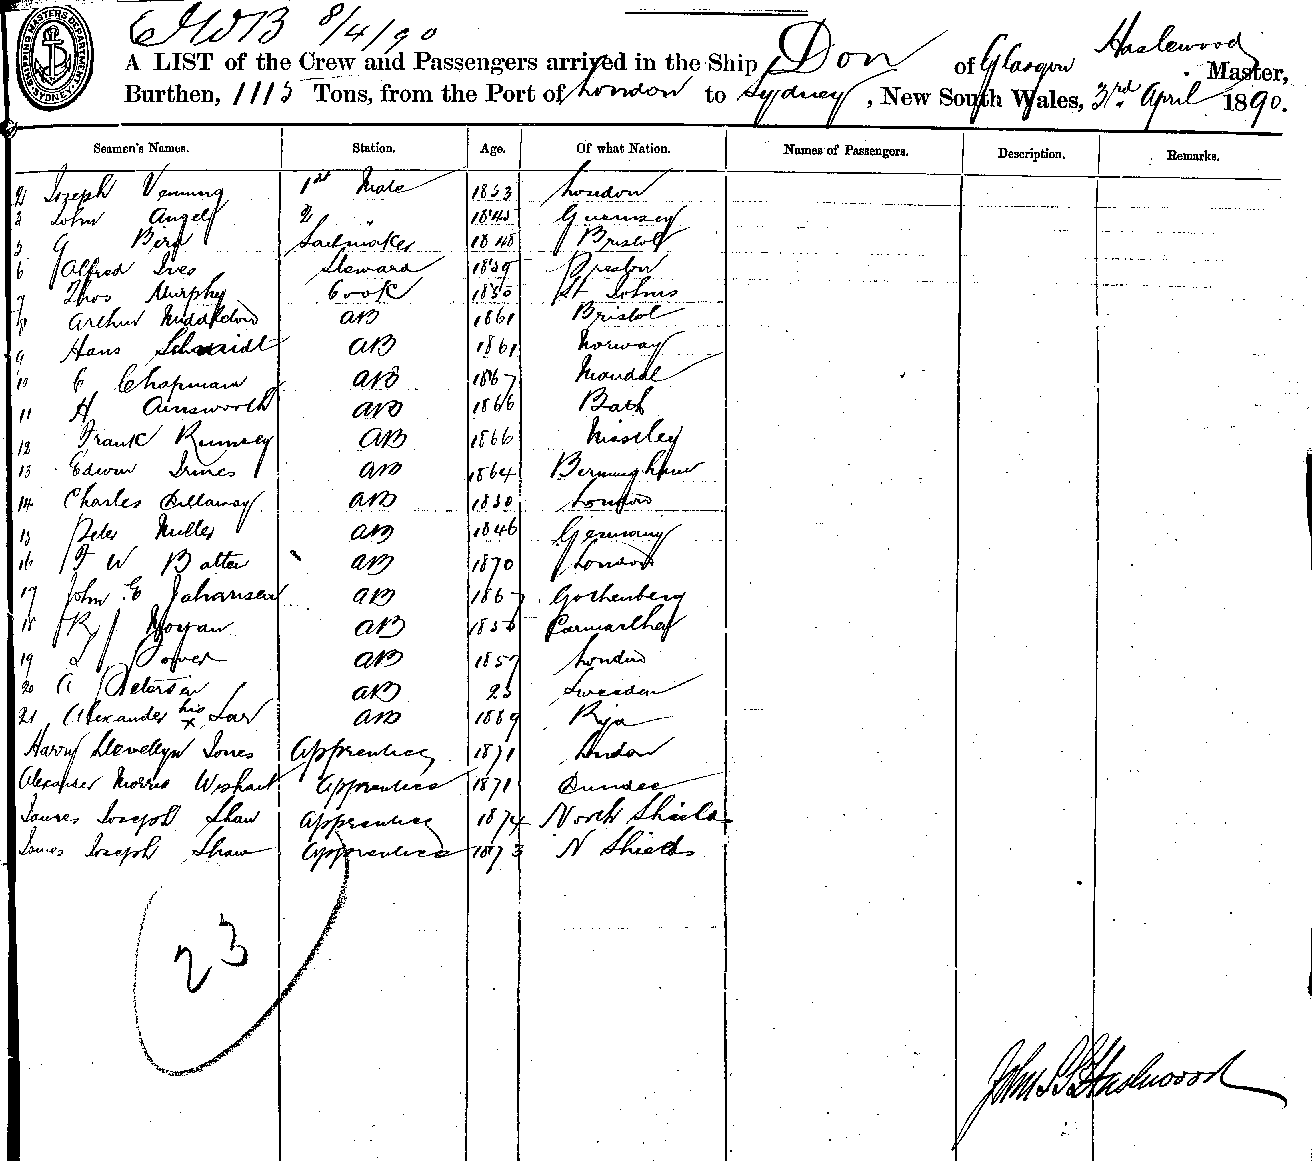 SHIPPING MASTERS DEPARTMENT SYDNEY
8/4/90
A LIST of the Crew and Passengers arrived in the Ship Don of Glasgow Haslewood Master,
Burthen, 1115 Tons, from the Port of London to Sydney, New South Wales, 3rd April 1890.
Seamen's Names. Station. Age. Of what Nation. Names of Passengers. Description. Remarks.
2 Joseph Venning 1st Mate 1853 London
3 John Angel 2 " 1845 Guernsey
5 G Bird Sailmaker 1848 Bristol
6 Alfred Ives Steward 1859 Preston
7 Thos Murphy Cook 1850 St Johns
8 Arthur Middleton AB 1861 Bristol
9 Hans Schmidt AB 1861 Norway
10 C Chapman AB 1867 Mandal
11 H Ainsworth AB 1866 Bath
12 Frank Rumsey AB 1866 Mistley
13 Edwin AB 1864 Birmingham
14 Charles Dillaway AB 1850 London
15 Peter Miller AB 1846 Germany
16 F W Batter AB 1870 London
17 John E Johansen AB 1867 Gothenberg
18 Morgan AB 1856 Carmarthen
19 Power AB 1857 London
20 A Peterson AB 25 Sweden
21 Alexander his x AB 1869 Riga
Harry Llewellyn Jones Apprentice 1871 London
Alexander Morris Wishart Apprentice 1871 Dundee
James Joseph Shaw Apprentice 1874 North Shields
James Joseph Shaw Apprentice 1873 N Shields
23
John Haslewood